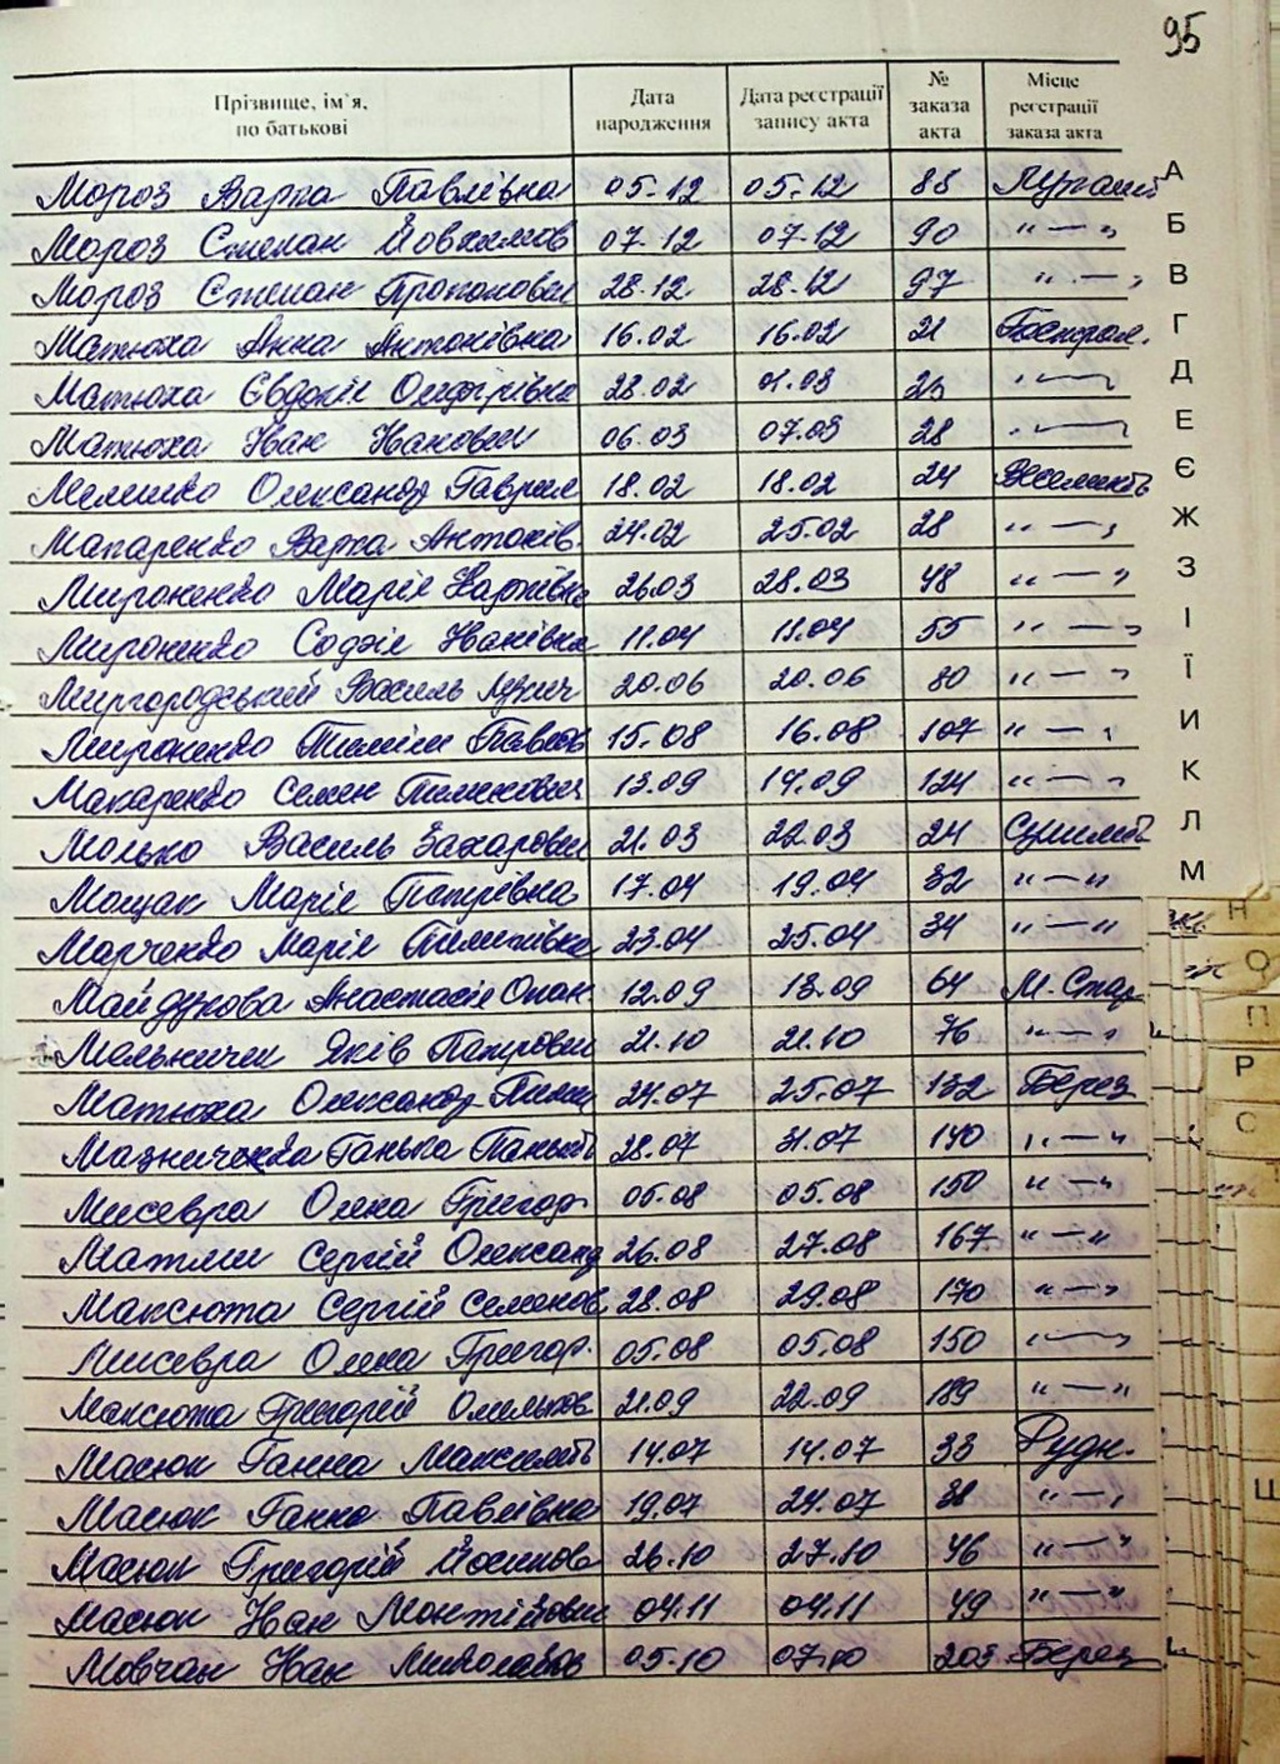 95
Прізвище, ім`я, по батькові Дата народження Дата реєстрації запису акта № заказа акта Місце реєстрації заказа акта
Мороз Варка Павлівна 05.12 05.12 88
Мороз Степан 07.12 07.12 90 " — "
Мороз Степан Прокопович 28.12 28.12 97 " — "
Матюха Анна Антонівна 16.02 16.02 21
Матюха Євдокія 28.02 01.03 " — "
Матюха Іван Іванович 06.03 07.03 28 " — "
Мелешко Олександр Гаврил 18.02 18.02 24
Макаренко Варка Антонів. 24.02 25.02 28 " — "
Мироненко Марія 26.03 28.03 48 " — "
Мироненко Софія Іванівна 11.04 11.04 55 " — "
Миргородський Василь 20.06 20.06 80 " — "
Мироненко Павлов 15.08 16.08 107 " — "
Макаренко Семен 13.09 14.09 124 " — "
Молько Василь Захарович 21.03 22.03 24
Мощак Марія Петрівна 17.04 19.04 32 " — "
Марченко Марія 23.04 25.04 34 " — "
Майдукова Анастасія Опан. 12.09 13.09 64 М. Стар
Мельничен Яків Петрович 21.10 21.10 76 " — "
Матюха Олександр 24.07 25.07 132 Берез
Ганька 28.07 31.07 140 " — "
Мисевра Олена Григор 05.08 05.08 150 " — "
Сергій Олександ 26.08 27.08 167 " — "
Максюта Сергій Семенов 28.08 29.08 170 " — "
Мисевра Олена Григор. 05.08 05.08 150 " — "
Максюта Григорій Омельков 21.09 22.09 189 " — "
Масюк Ганна 14.07 14.07 33 Рудн.
Масюк Ганна Павлівна 19.07 24.07 38 " — "
Масюк Григорій Йосипов 26.10 27.10 46 " — "
Масюк Іван 04.11 04.11 49 " — "
Мовчан Іван 05.10 07.10 203 Берез
А
Б
В
Г
Д
Е
Є
Ж
З
І
Ї
И
К
Л
М
Н
О
П
Р
С
Т
Ш